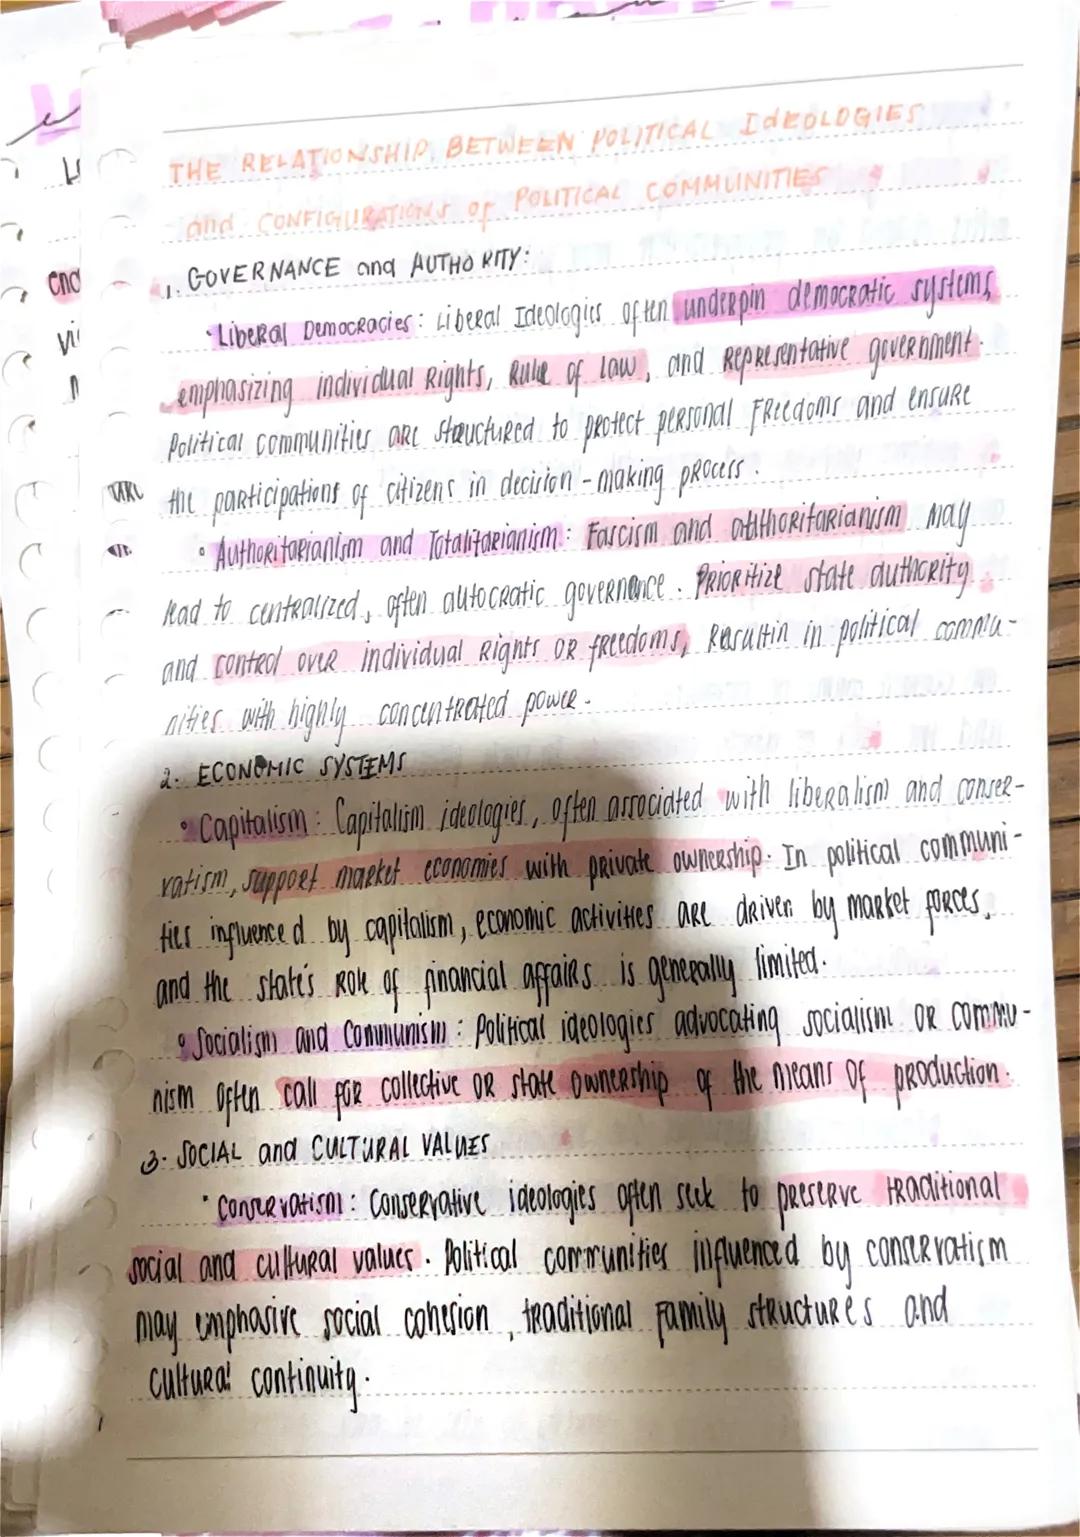 THE RELATIONSHIP BETWEEN POLITICAL IDEOLOGIES
and CONFIGURATIONS of POLITICAL COMMUNITIES
1. GOVERNANCE and AUTHORITY:
• Liberal Democracies: Liberal Ideologies often underpin democratic systems,
emphasizing individual Rights, Rule of law, and Representative government.
Political communities are structured to protect personal Freedoms and ensure
the participations of citizens in decision-making process.
• Authoritarianism and Totalitarianism: Fascism and authoritarianism may
lead to centralized, often autocratic governance. Prioritize state authority
and control over individual Rights OR freedoms, Resultin in political commu-
nities with highly concentrated power.
2. ECONOMIC SYSTEMS
• Capitalism: Capitalism ideologies, often associated with liberalism and conser-
vatism, support market economies with private ownership. In political communi-
ties influenced by capitalism, economic activities are driven by market forces,
and the state's Role of financial affairs is generally limited.
• Socialism and Communism: Political ideologies advocating socialism OR commu-
nism often call for collective OR state ownership of the means of production.
3. SOCIAL and CULTURAL VALUES
• Conservatism: Conservative ideologies often seek to preserve traditional
social and cultural values. Political communities influenced by conservatism
may emphasive social cohesion, traditional Family structures and
cultural continuity.